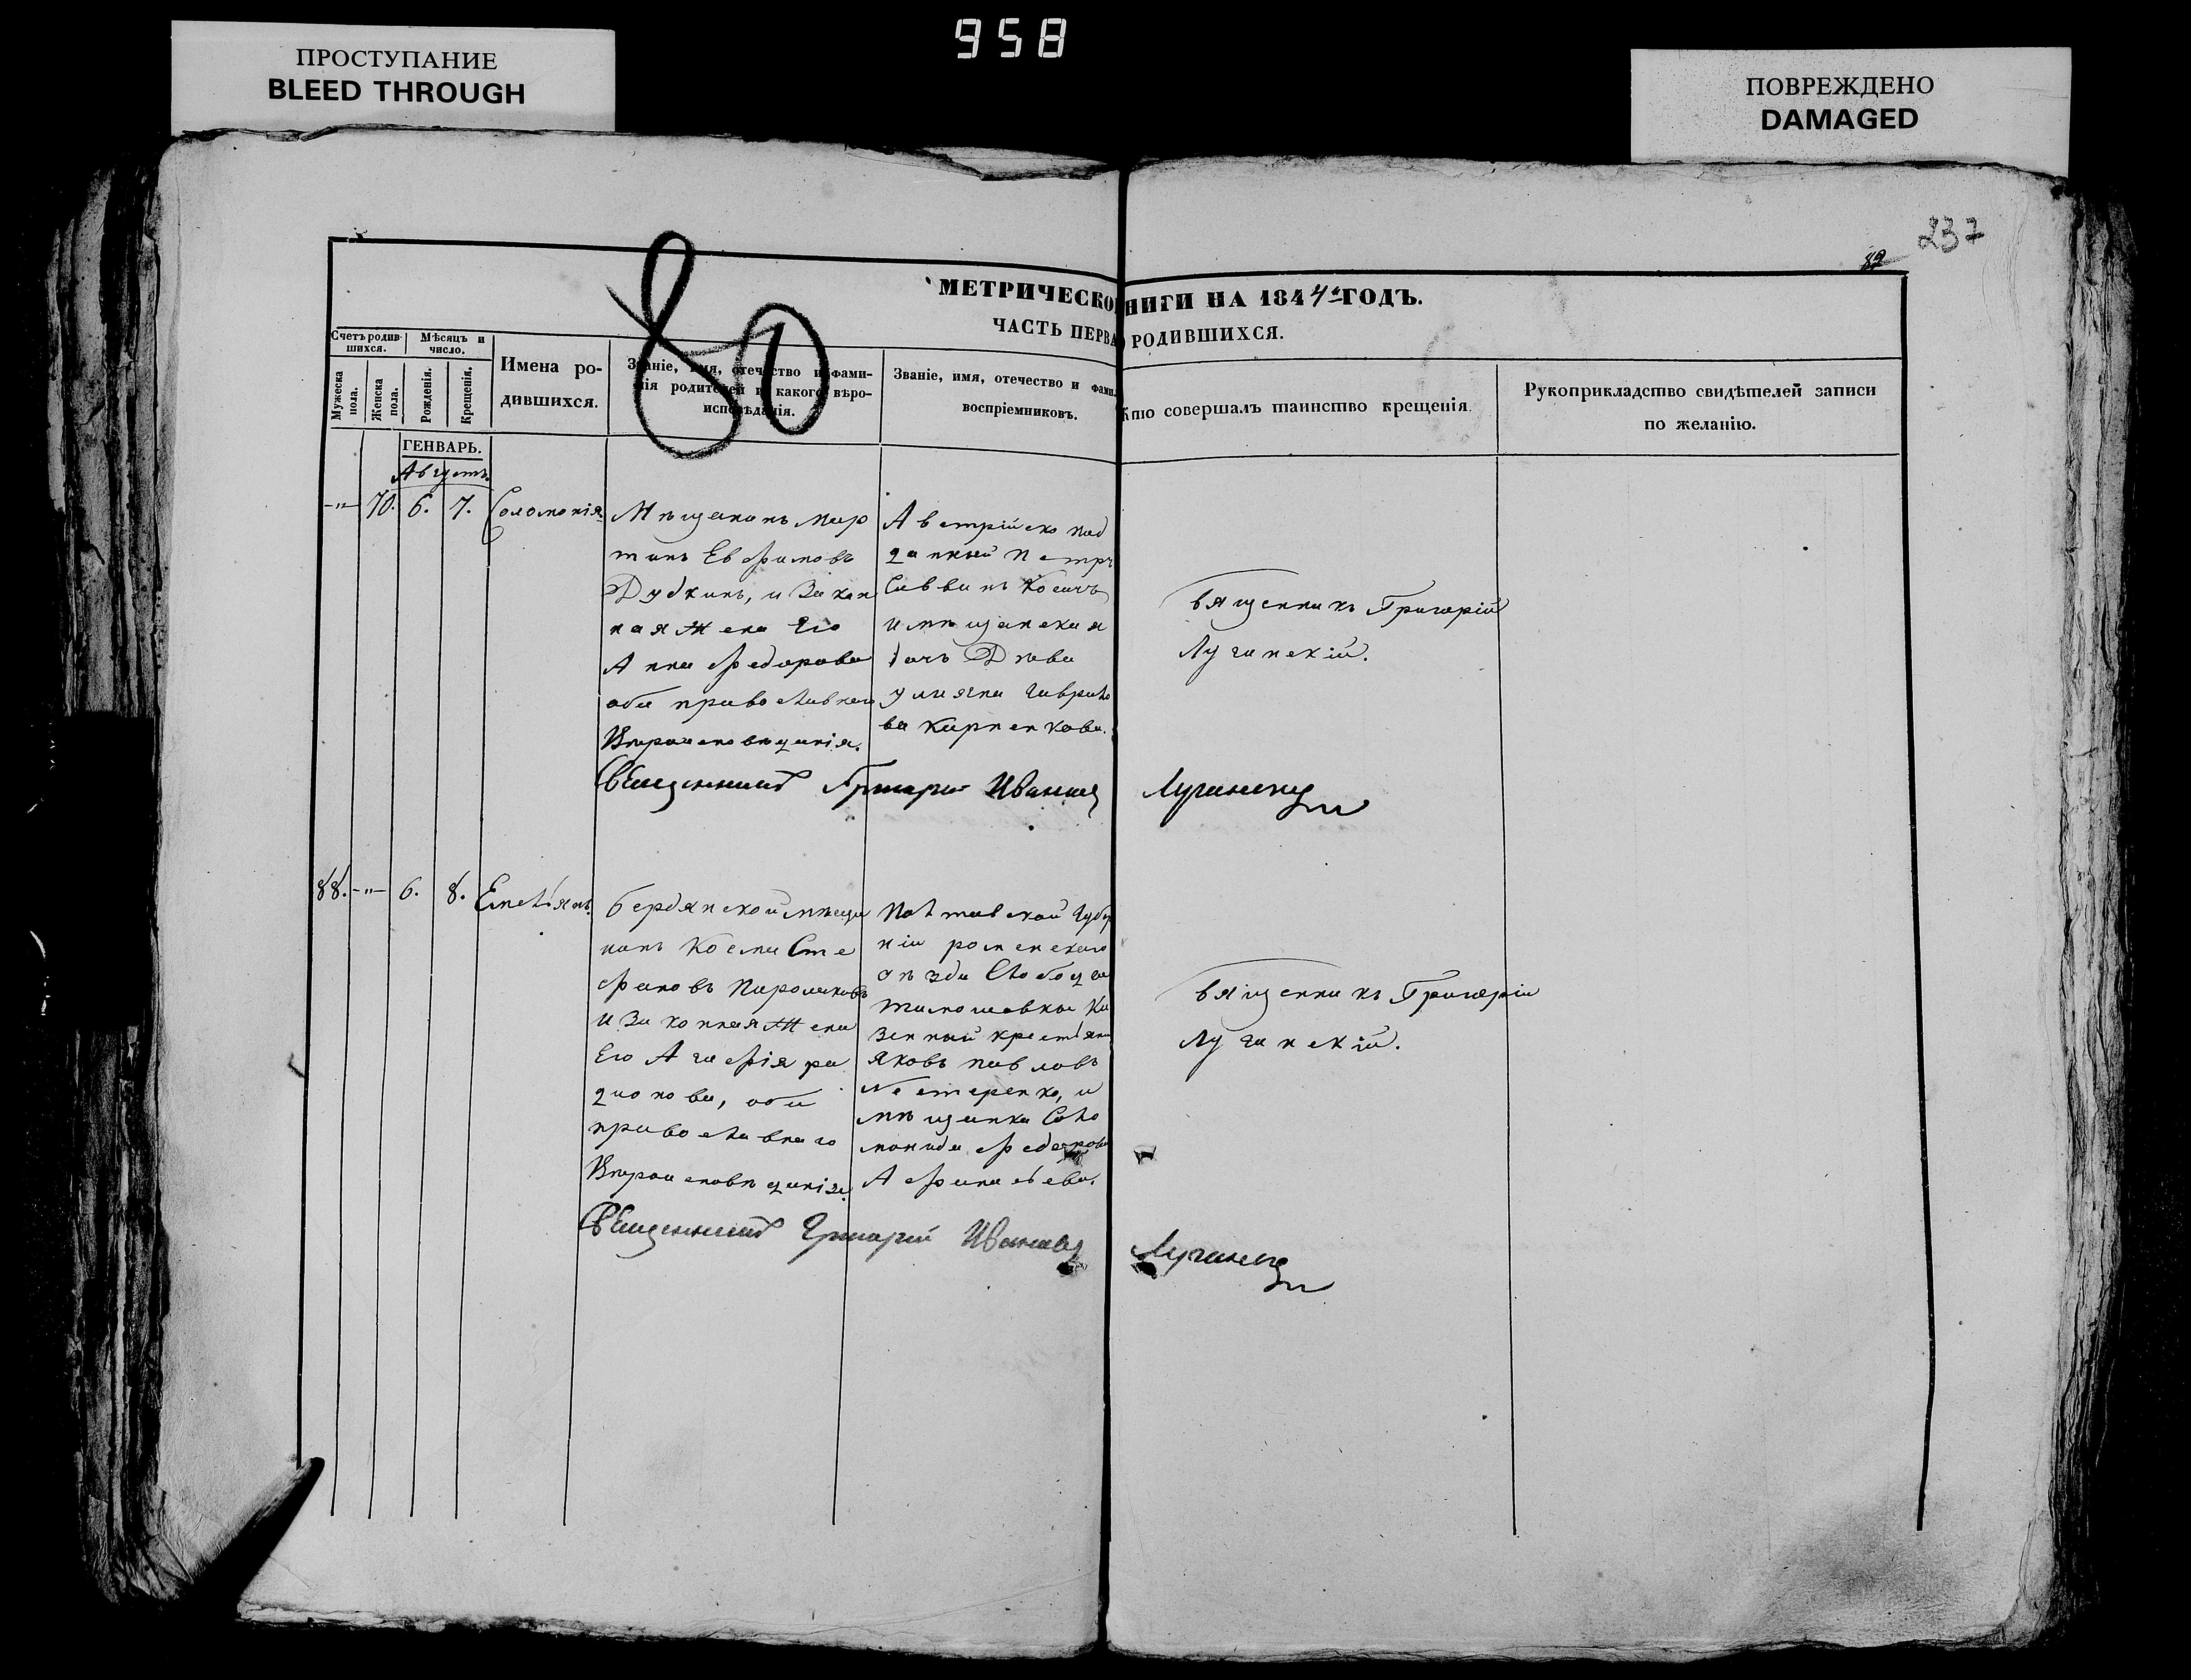 958
ПРОСТУПАНИЕ
BLEED THROUGH
ПОВРЕЖДЕНО
DAMAGED
237
82
80
МЕТРИЧЕСКО НИГИ НА 1844 ГОДЪ.
ЧАСТЬ ПЕРВА РОДИВШИХСЯ.
Счетъ родив-
шихся.
Мужеска
пола.
Женска
пола.
Мѣсяцъ и
число.
Рожденія.
Крещенія.
Имена ро-
дившихся.
Званіе, имя, отечество и фами-
лія родителей и какого вѣро-
исповѣданія.
Званіе, имя, отечество и фами
воспріемниковъ.
Кто совершалъ таинство крещенія.
Рукоприкладство свидѣтелей записи
по желанію.
ГЕНВАРЬ.
Августъ.
-"- 70. 6. 7. Соломонія
Мѣщанинъ Мар
тинъ Евфимовъ
Дудкинъ, и Закон
ная Жена Его
Анна Федорова
оба православнаго
Вѣроисповѣданія.
Австрійско под
данный Петръ
Саввинъ
и мѣщанская
Дѣва
Улияна Гаврило
ва Карпенкова.
Священникъ Григорій
Луганскій.
Священникъ Григорій Ивановъ Луганскій
88. -"- 6. 8. Емельянъ.
Бердянской мѣща
нинъ Косма Сте
фановъ
и Законная Жена
Его Агафія Ра
дионова, оба
православнаго
Вѣроисповѣданія.
Полтавской Губер
ніи Роменскаго
уѣзда Слобода
Тимошовка Ка
зенный крестьянин
Яковъ Павловъ
Нестеренко, и
мѣщанка Соло
монида Федорова
Афанасьева.
Священникъ Григорій
Луганскій.
Священникъ Григорій Ивановъ Луганскій